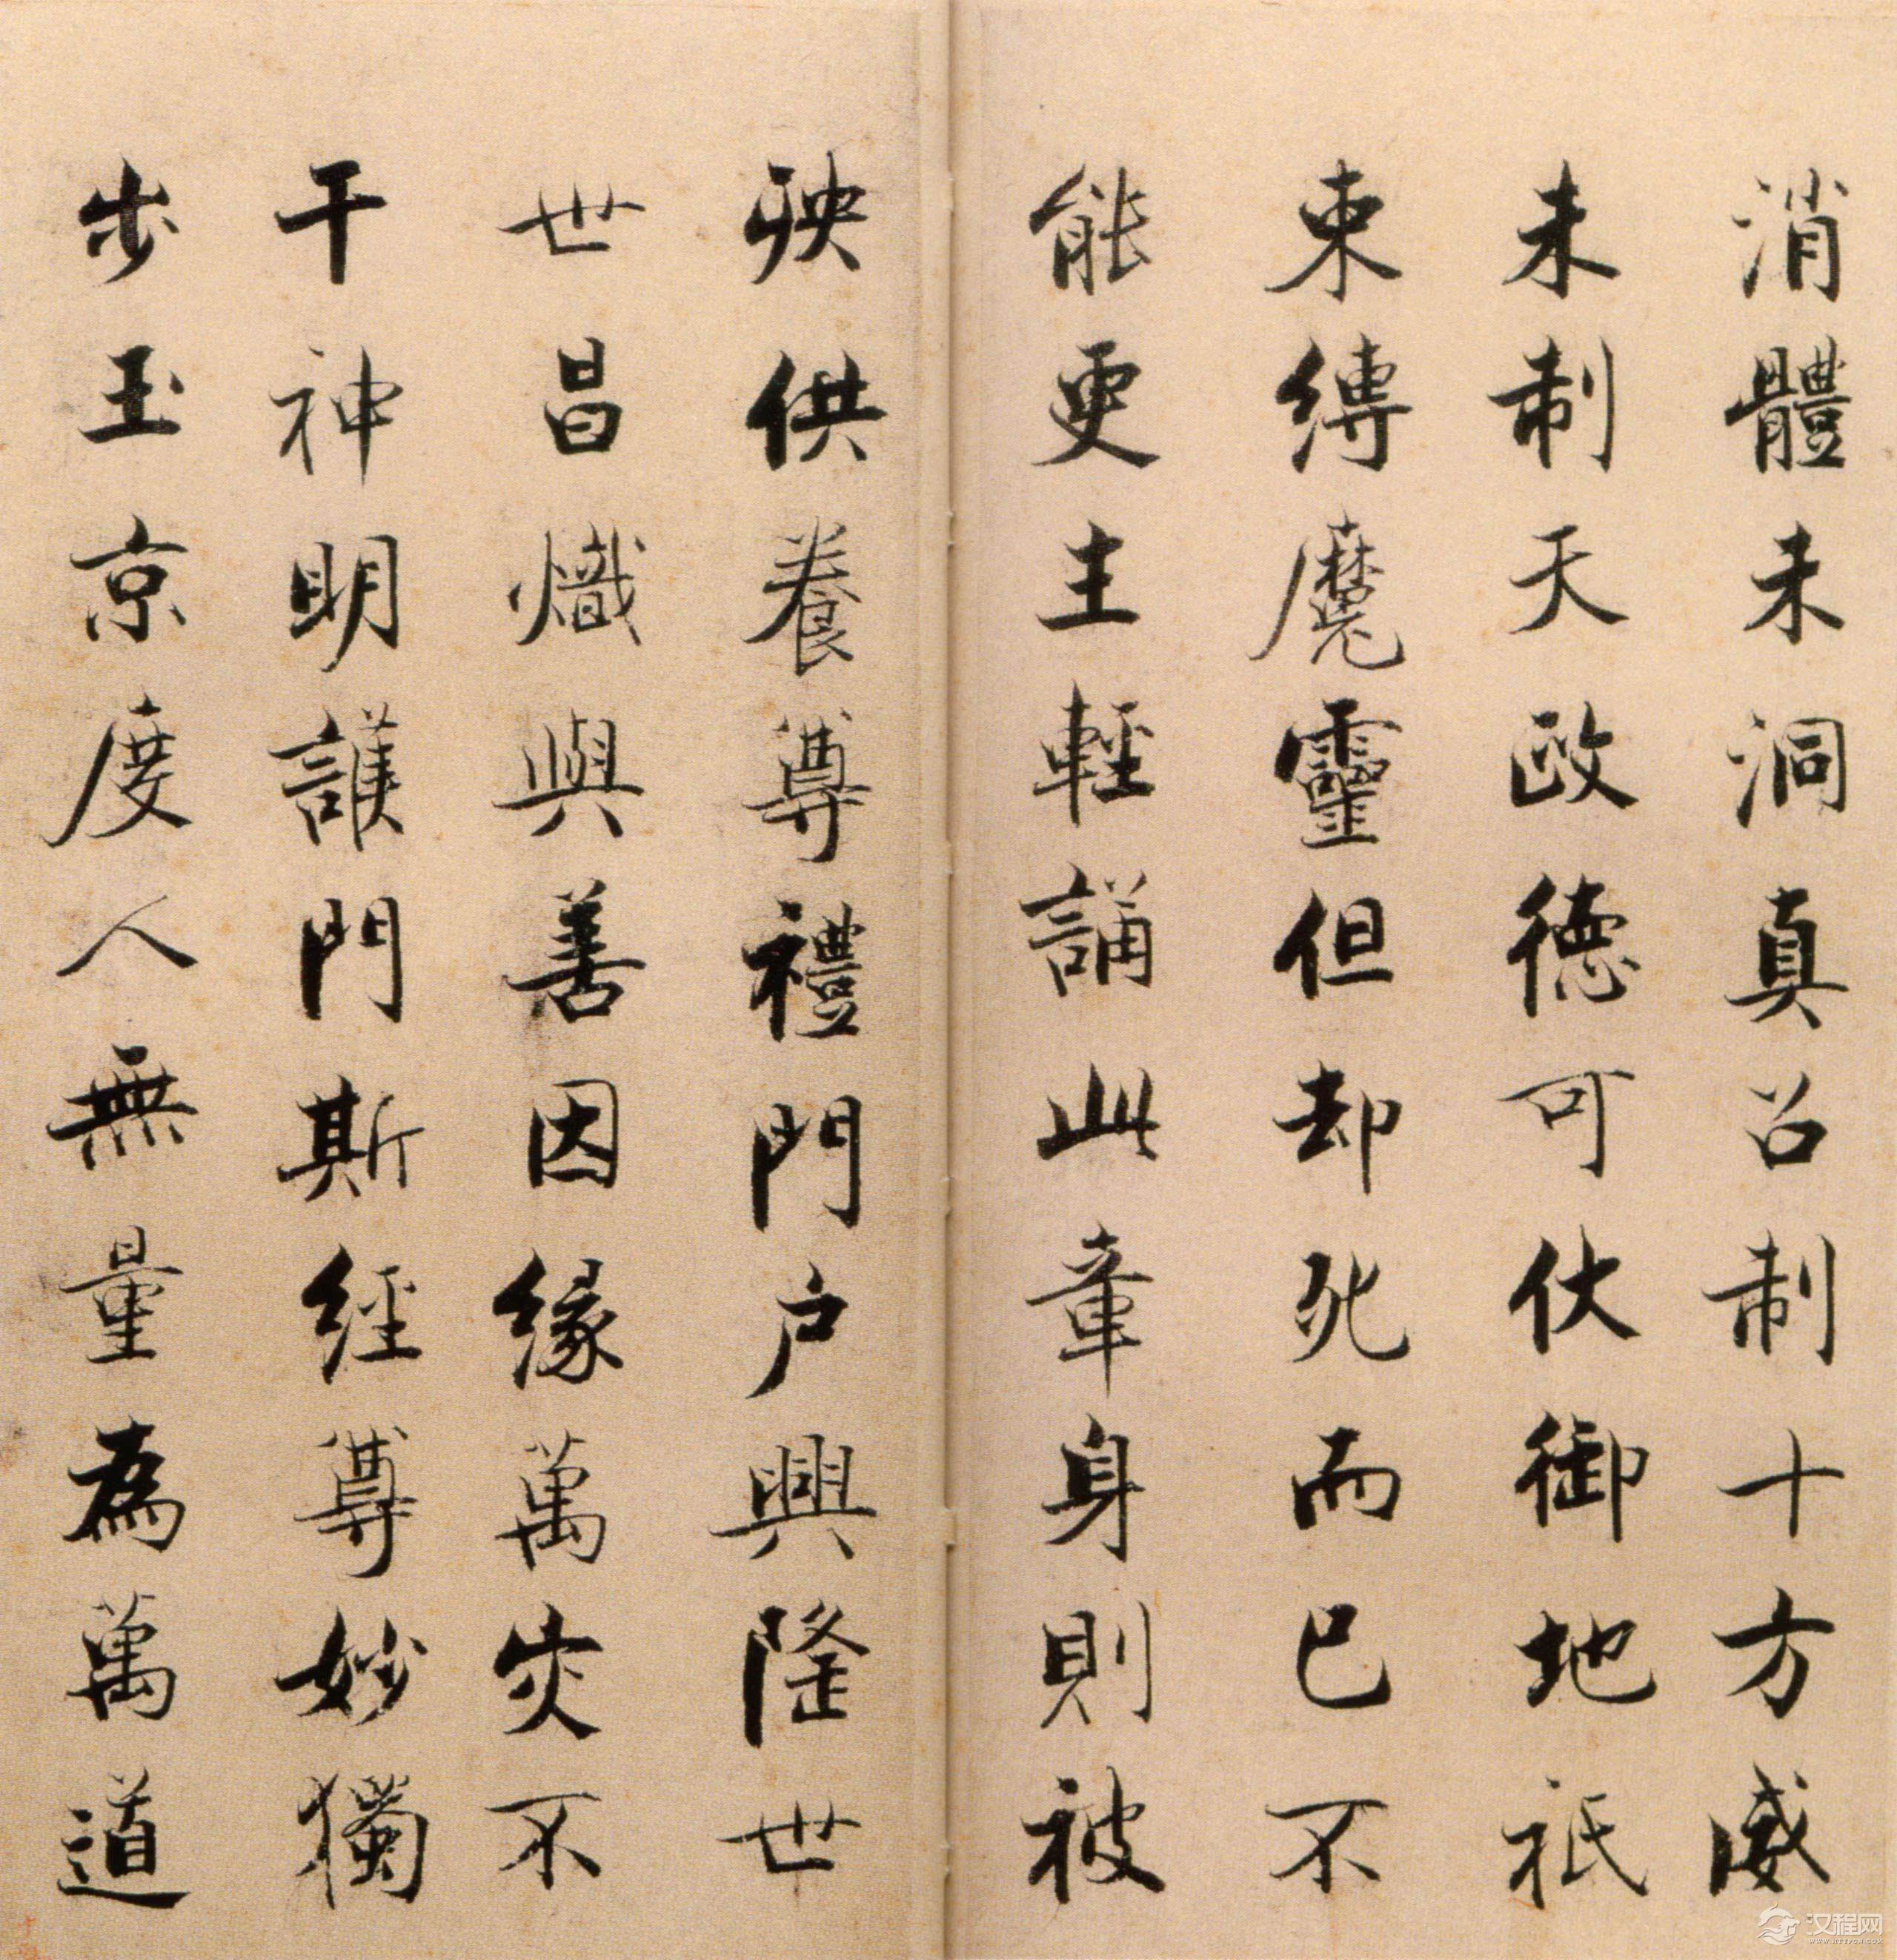 消體未洞真召制十方威
未制天政德可伏御地祇
束縛魔靈但却死而已不
能更生輕誦此章身則被
殃供養尊禮門户興隆世
世昌熾與善因緣萬灾不
干神明護門斯經尊妙獨
步玉京度人無量為萬道
汉程网
WWW.HTTPCN.COM